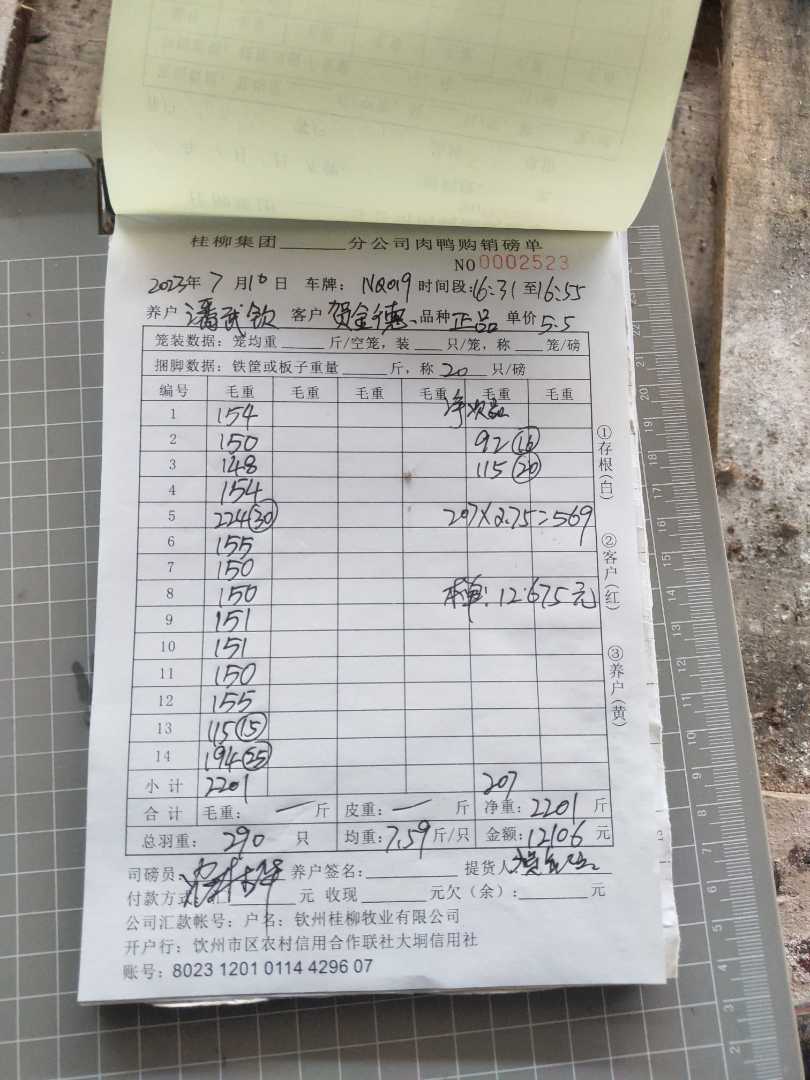 桂柳集团______分公司肉鸭购销磅单
NO 0002523
2023年 7月10日 车牌: NQ019 时间段: 16:31 至 16:55
养户 潘武钦 客户 贺金德 品种 正品 单价 5.5
笼装数据: 笼均重 ____ 斤/空笼, 装 __ 只/笼, 称 __ 笼/磅
捆脚数据: 铁筐或板子重量 ____ 斤, 称 20 只/磅
编号 毛重 毛重 毛重 毛重 毛重 毛重
1 154 净次品
2 150 92 (16)
3 148 115 (20)
4 154
5 224 (30) 207×2.75=569
6 155
7 150
8 150 本单: 12675元
9 151
10 151
11 150
12 155
13 115 (15)
14 194 (25)
小计 2201 207
合计 毛重: 一 斤 皮重: 一 斤 净重: 2201 斤
总羽重: 290 只 均重: 7.59 斤/只 金额: 12106 元
司磅员: 养户签名:________ 提货人:
付款方式: 汇______元 收现______元欠(余):______元
公司汇款帐号: 户名: 钦州桂柳牧业有限公司
开户行: 钦州市区农村信用合作联社大垌信用社
账号: 8023 1201 0114 4296 07
①存根(白)
②客户(红)
③养户(黄)